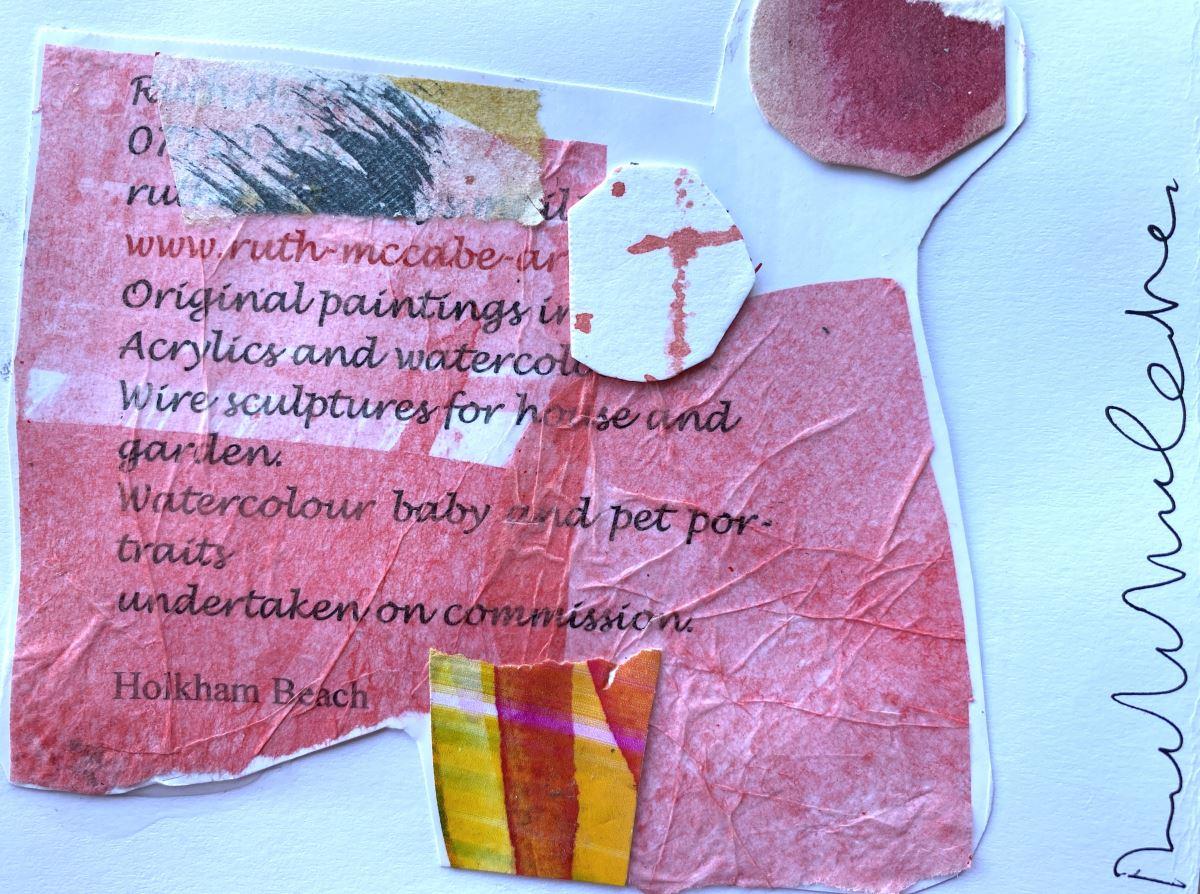 07
www.ruth-mccabe-ar
Original paintings in
Acrylics and watercolo
Wire sculptures for house and
garden.
Watercolour baby and pet por-
traits
undertaken on commission.
Holkham Beach